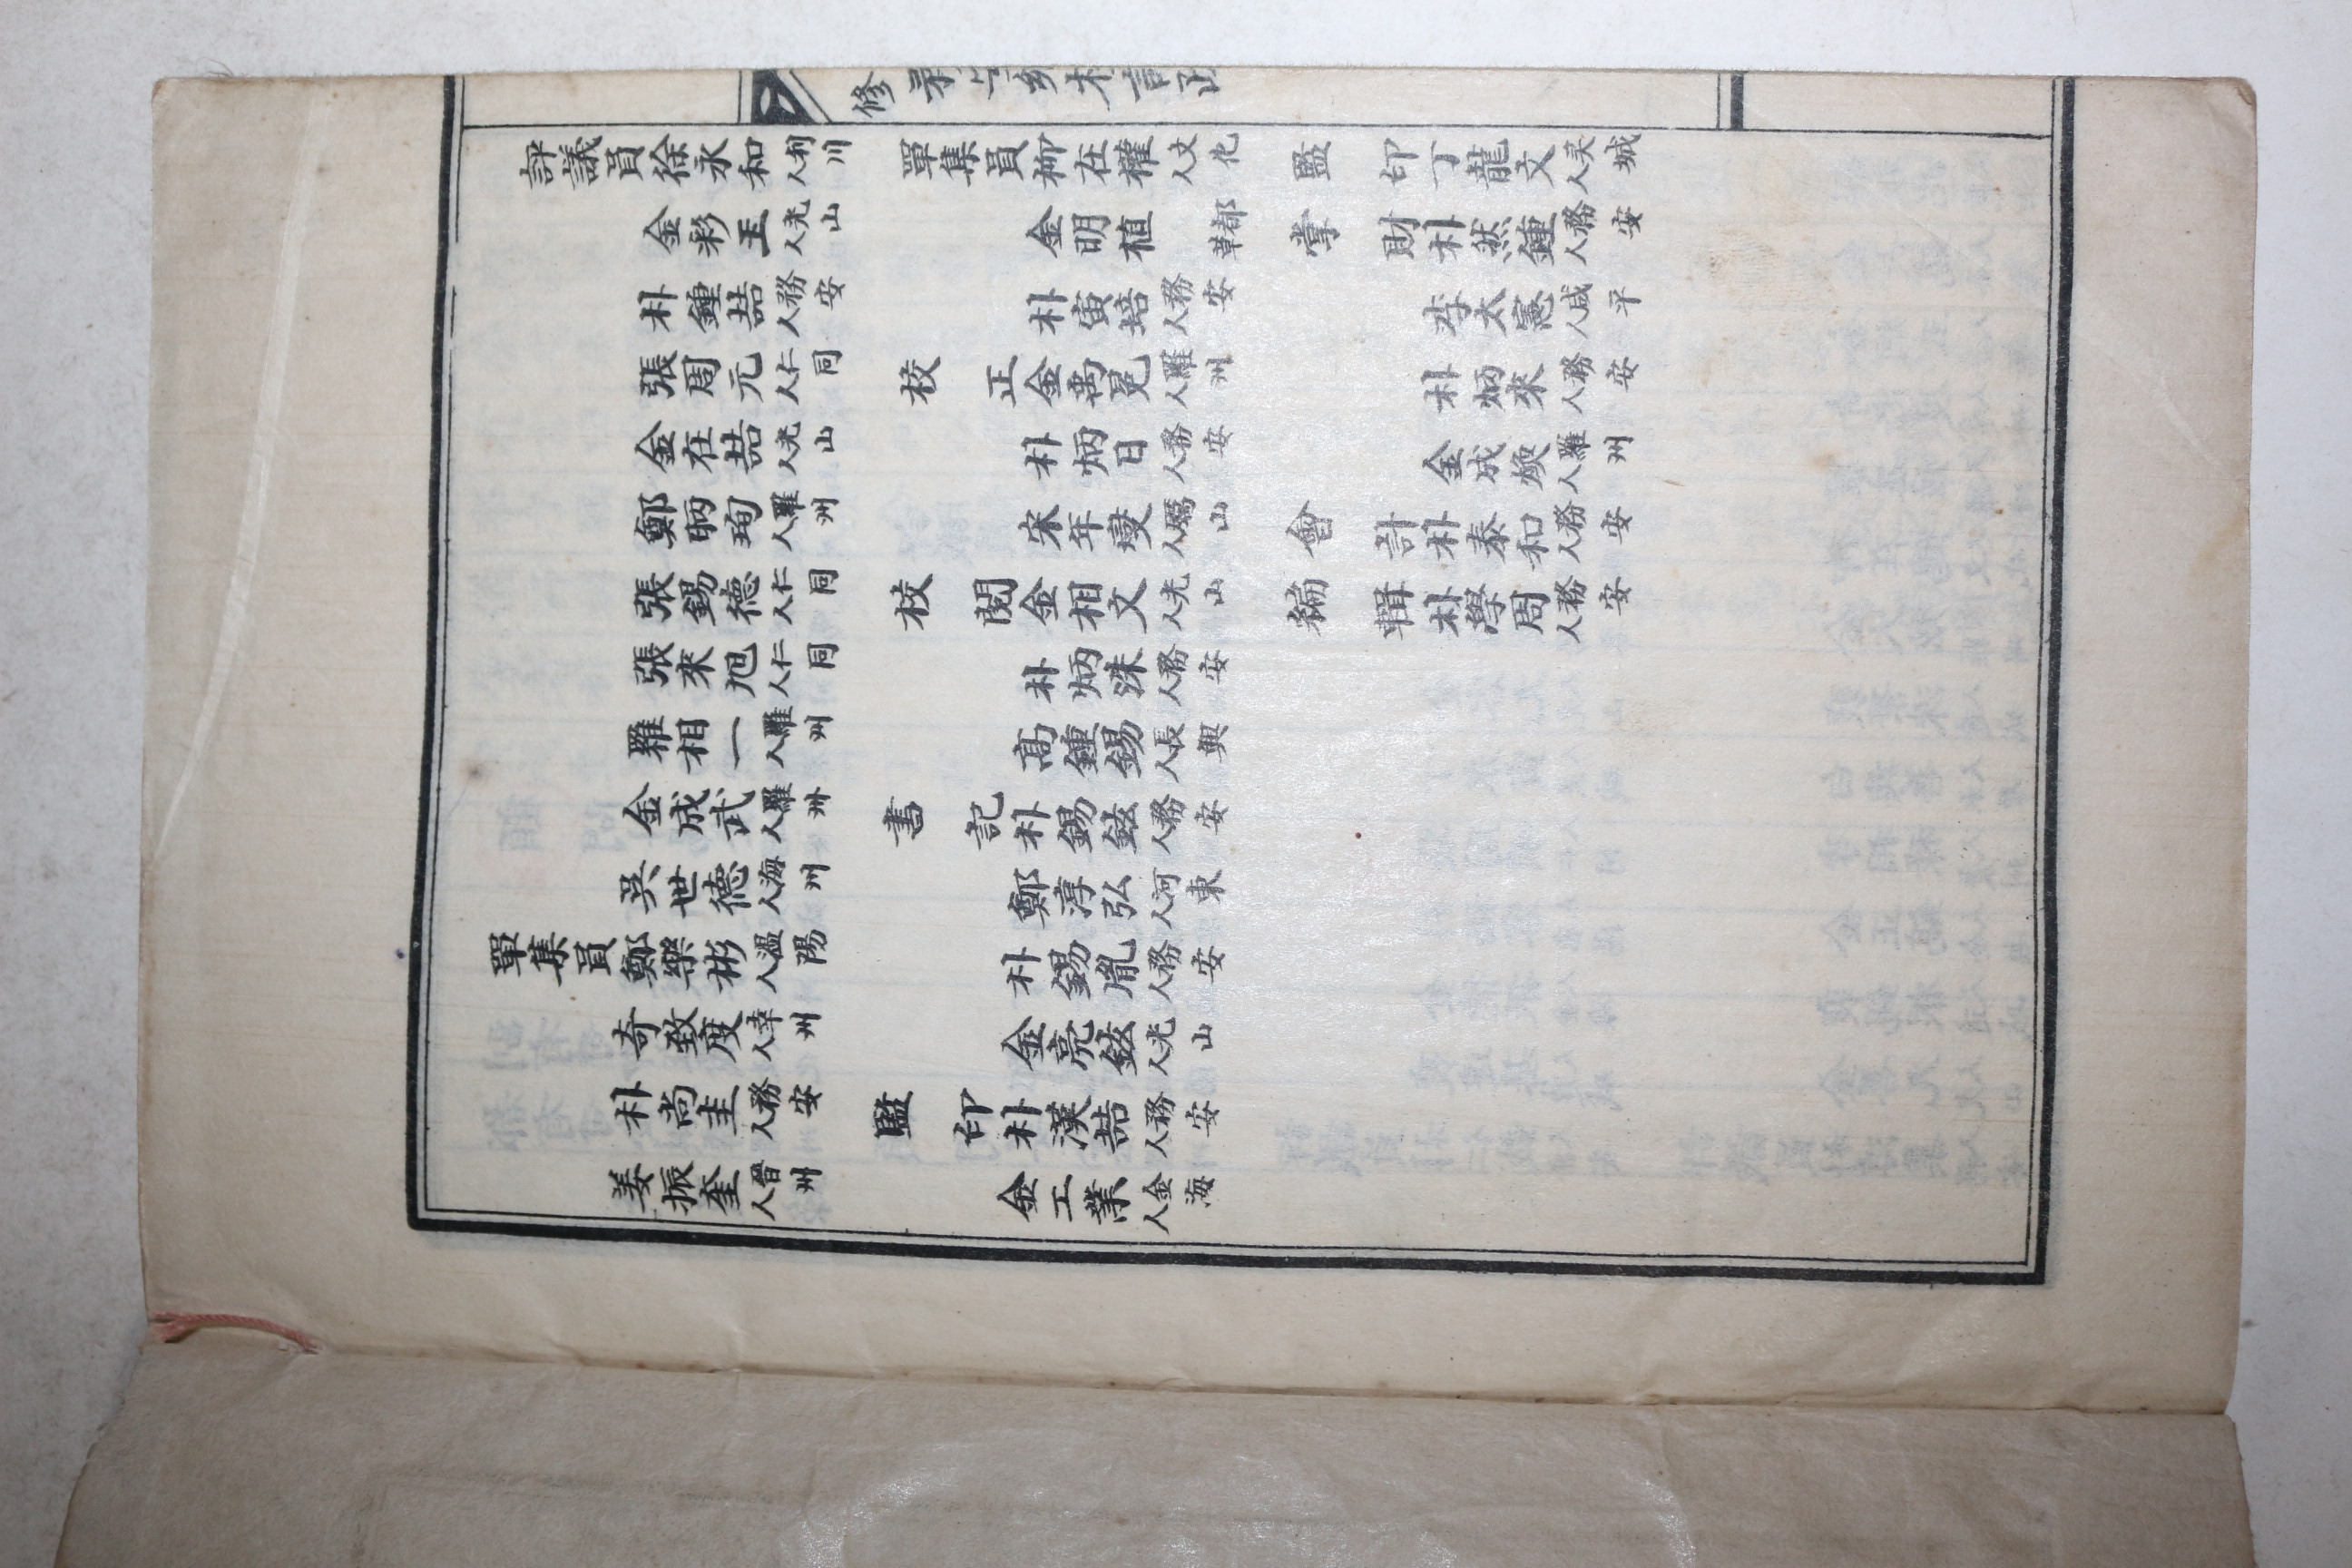 修
評議員徐永和利川人
金彩玉光山人
朴鍾喆務安人
張周元仁同人
金在喆光山人
鄭昞珣羅州人
張錫德仁同人
張來旭仁同人
羅相一羅州人
金成武羅州人
吳世德海州人
單集員鄭樂彬溫陽人
奇致度幸州人
朴尚圭務安人
姜振奎晉州人
單集員柳在權文化人
金明植都草
朴寅培務安人
校正金禹冕羅州人
朴炳日務安人
宋年燮礪山人
校閱金相文光山人
朴炳洙務安人
高鍾錫長興人
書記朴錫鉉務安人
鄭淳弘河東人
朴錫胤務安人
金亮鉉光山人
監印朴漢喆務安人
金工業金海人
監印丁龍文灵城人
掌財朴然鍾務安人
李太憲咸平人
朴炳來務安人
金成煥羅州人
會計朴泰和務安人
編輯朴學周務安人